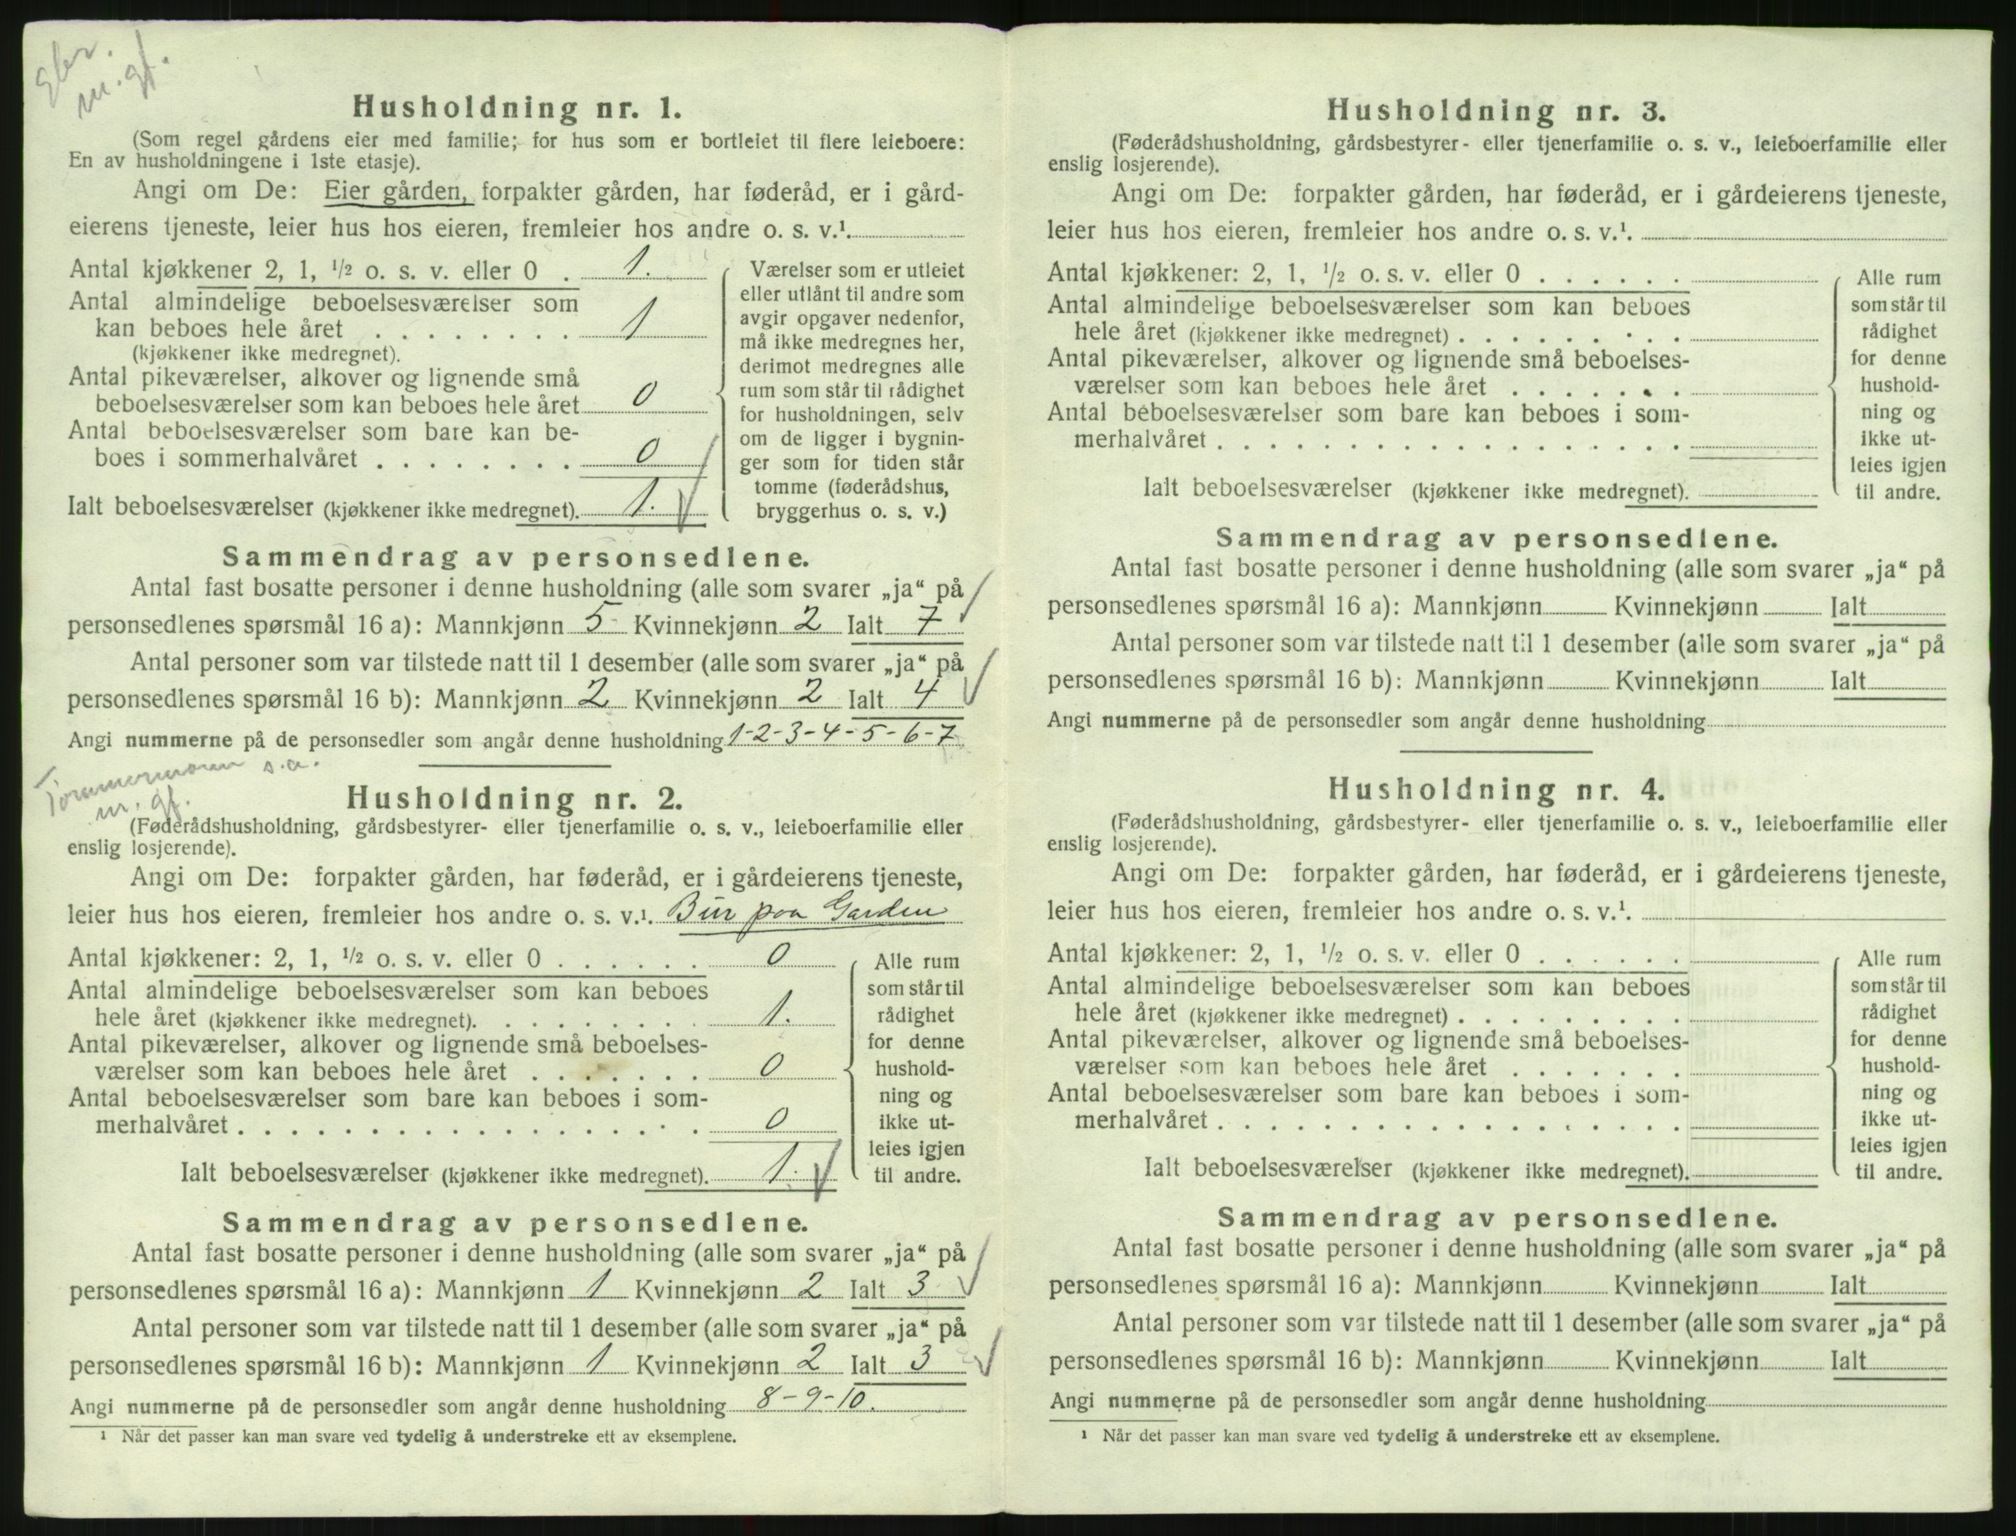 gbr.
m. gf.
Husholdning nr. 1.
(Som regel gårdens eier med familie; for hus som er bortleiet til flere leieboere:
En av husholdningene i 1ste etasje).
Angi om De: Eier gården, forpakter gården, har føderåd, er i gård-
eierens tjeneste, leier hus hos eieren, fremleier hos andre o. s. v.¹.
Antal kjøkkener 2, 1, ½ o. s. v. eller 0 . 1.
Antal almindelige beboelsesværelser som
kan beboes hele året . . . . . . . . 1
(kjøkkener ikke medregnet).
Antal pikeværelser, alkover og lignende små
beboelsesværelser som kan beboes hele året 0
Antal beboelsesværelser som bare kan be-
boes i sommerhalvåret . . . . . . . . 0
Ialt beboelsesværelser (kjøkkener ikke medregnet). 1.
Værelser som er utleiet
eller utlånt til andre som
avgir opgaver nedenfor,
må ikke medregnes her,
derimot medregnes alle
rum som står til rådighet
for husholdningen, selv
om de ligger i bygnin-
ger som for tiden står
tomme (føderådshus,
bryggerhus o. s. v.)
Sammendrag av personsedlene.
Antal fast bosatte personer i denne husholdning (alle som svarer „ja“ på
personsedlenes spørsmål 16 a): Mannkjønn 5 Kvinnekjønn 2 Ialt 7
Antal personer som var tilstede natt til 1 desember (alle som svarer „ja“ på
personsedlenes spørsmål 16 b): Mannkjønn 2 Kvinnekjønn 2 Ialt 4
Angi nummerne på de personsedler som angår denne husholdning 1-2-3-4-5-6-7
Tømmermann s.a.
m. gf.
Husholdning nr. 2.
(Føderådshusholdning, gårdsbestyrer- eller tjenerfamilie o. s. v., leieboerfamilie eller
enslig losjerende).
Angi om De: forpakter gården, har føderåd, er i gårdeierens tjeneste,
leier hus hos eieren, fremleier hos andre o. s. v.¹. Bur paa Garden
Antal kjøkkener: 2, 1, ½ o. s. v. eller 0 . . . . . . 0
Antal almindelige beboelsesværelser som kan beboes
hele året (kjøkkener ikke medregnet). . . . . . . . . 1.
Antal pikeværelser, alkover og lignende små beboelses-
værelser som kan beboes hele året . . . . . . . 0
Antal beboelsesværelser som bare kan beboes i som-
merhalvåret . . . . . . . . . . . . . . . . . 0
Ialt beboelsesværelser (kjøkkener ikke medregnet). 1.
Alle rum
som står til
rådighet
for denne
hushold-
ning og
ikke ut-
leies igjen
til andre.
Sammendrag av personsedlene.
Antal fast bosatte personer i denne husholdning (alle som svarer „ja“ på
personsedlenes spørsmål 16 a): Mannkjønn 1 Kvinnekjønn 2 Ialt 3
Antal personer som var tilstede natt til 1 desember (alle som svarer „ja“ på
personsedlenes spørsmål 16 b): Mannkjønn 1 Kvinnekjønn 2 Ialt 3
Angi nummerne på de personsedler som angår denne husholdning 8-9-10.
¹ Når det passer kan man svare ved tydelig å understreke ett av eksemplene.
Husholdning nr. 3.
(Føderådshusholdning, gårdsbestyrer- eller tjenerfamilie o. s. v., leieboerfamilie eller
enslig losjerende).
Angi om De: forpakter gården, har føderåd, er i gårdeierens tjeneste,
leier hus hos eieren, fremleier hos andre o. s. v.¹.
Antal kjøkkener: 2, 1, ½ o. s. v. eller 0 . . . . . .
Antal almindelige beboelsesværelser som kan beboes
hele året (kjøkkener ikke medregnet) . . . . . . . . .
Antal pikeværelser, alkover og lignende små beboelses-
værelser som kan beboes hele året . . . . . . .
Antal beboelsesværelser som bare kan beboes i som-
merhalvåret . . . . . . . . . . . . . . . . .
Ialt beboelsesværelser (kjøkkener ikke medregnet).
Alle rum
som står til
rådighet
for denne
hushold-
ning og
ikke ut-
leies igjen
til andre.
Sammendrag av personsedlene.
Antal fast bosatte personer i denne husholdning (alle som svarer „ja“ på
personsedlenes spørsmål 16 a): Mannkjønn Kvinnekjønn Ialt
Antal personer som var tilstede natt til 1 desember (alle som svarer „ja“ på
personsedlenes spørsmål 16 b): Mannkjønn Kvinnekjønn Ialt
Angi nummerne på de personsedler som angår denne husholdning
Husholdning nr. 4.
(Føderådshusholdning, gårdsbestyrer- eller tjenerfamilie o. s. v., leieboerfamilie eller
enslig losjerende).
Angi om De: forpakter gården, har føderåd, er i gårdeierens tjeneste,
leier hus hos eieren, fremleier hos andre o. s. v.¹.
Antal kjøkkener: 2, 1, ½ o. s. v. eller 0 . . . . . .
Antal almindelige beboelsesværelser som kan beboes
hele året (kjøkkener ikke medregnet) . . . . . . . . .
Antal pikeværelser, alkover og lignende små beboelses-
værelser som kan beboes hele året . . . . . . .
Antal beboelsesværelser som bare kan beboes i som-
merhalvåret . . . . . . . . . . . . . . . . .
Ialt beboelsesværelser (kjøkkener ikke medregnet).
Alle rum
som står til
rådighet
for denne
hushold-
ning og
ikke ut-
leies igjen
til andre.
Sammendrag av personsedlene.
Antal fast bosatte personer i denne husholdning (alle som svarer „ja“ på
personsedlenes spørsmål 16 a): Mannkjønn Kvinnekjønn Ialt
Antal personer som var tilstede natt til 1 desember (alle som svarer „ja“ på
personsedlenes spørsmål 16 b): Mannkjønn Kvinnekjønn Ialt
Angi nummerne på de personsedler som angår denne husholdning
¹ Når det passer kan man svare ved tydelig å understreke ett av eksemplene.